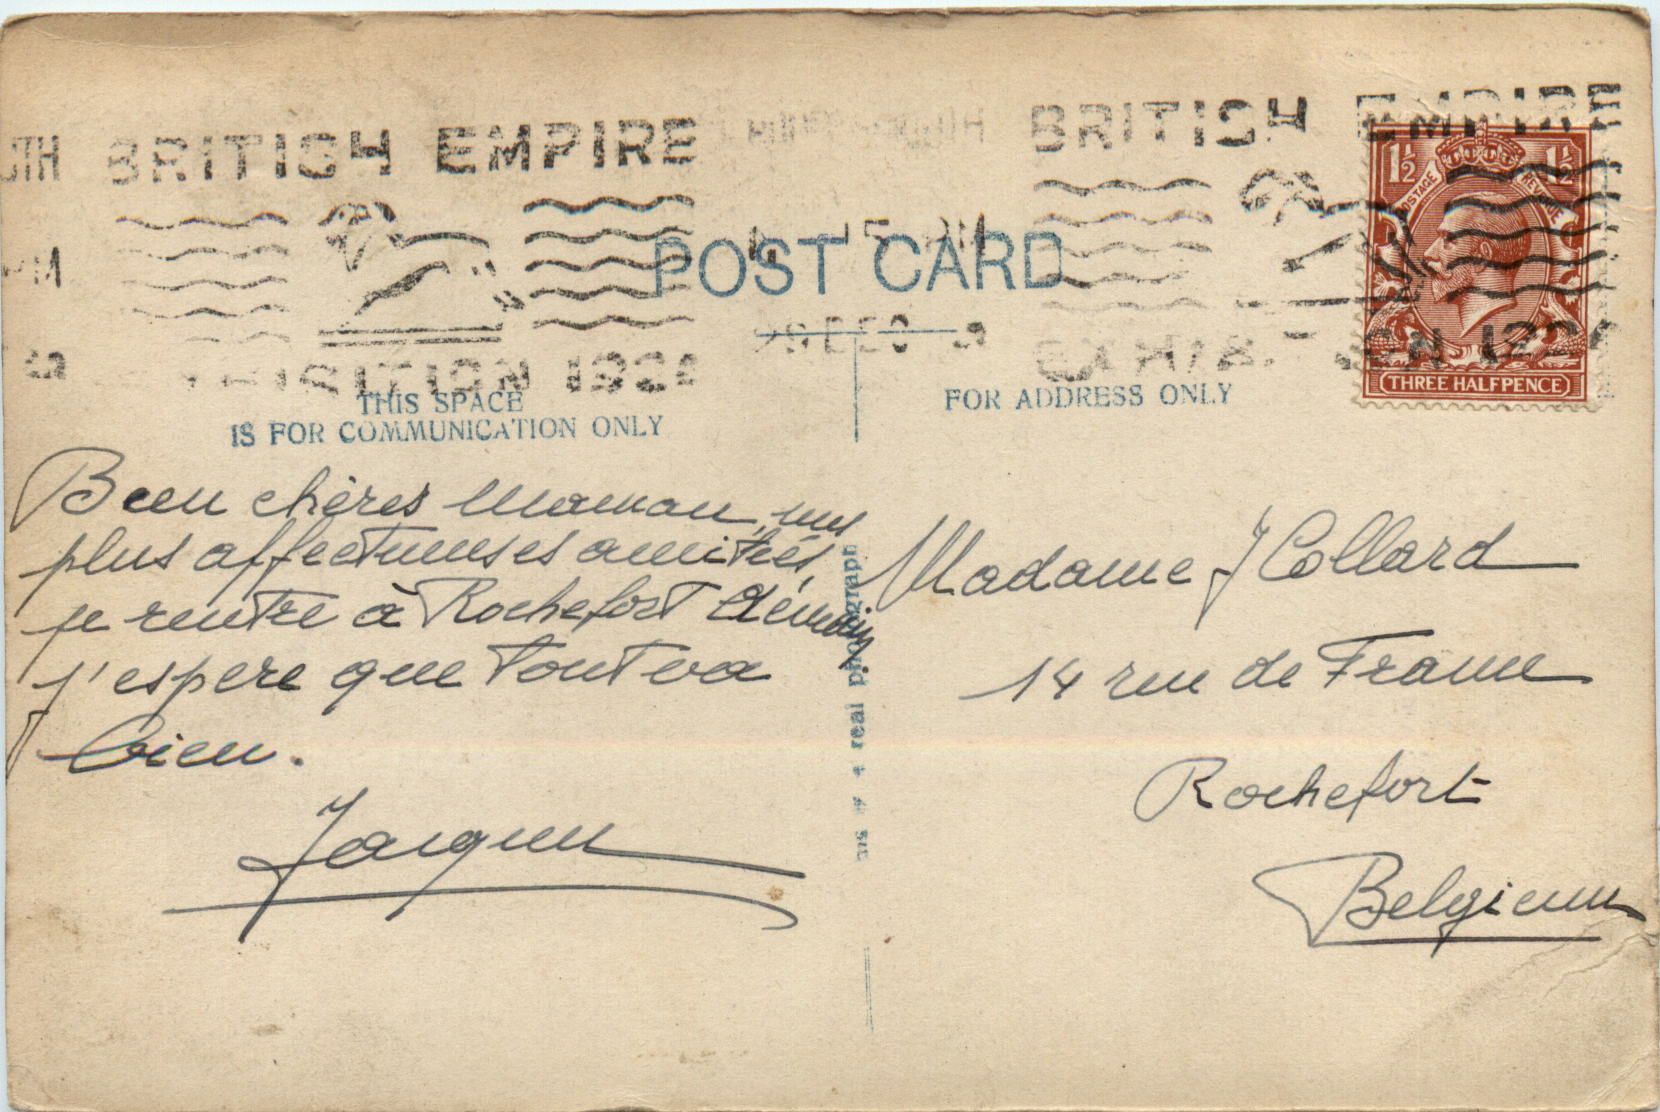 UTH BRITISH EMPIRE BRITISH EMPIRE
PM
EXHIBITION 192
29 DEC
POSTAGE REVENUE
1½ 1½
THREE HALFPENCE
POST CARD
THIS SPACE
IS FOR COMMUNICATION ONLY
FOR ADDRESS ONLY
Bien chères Maman, mes
plus affectueuses amitiés,
je rentre à Rochefort demain
j'espere que tout va
bien.
Jacques
real photograph
Madame J Collard
14 rue de France
Rochefort
Belgium